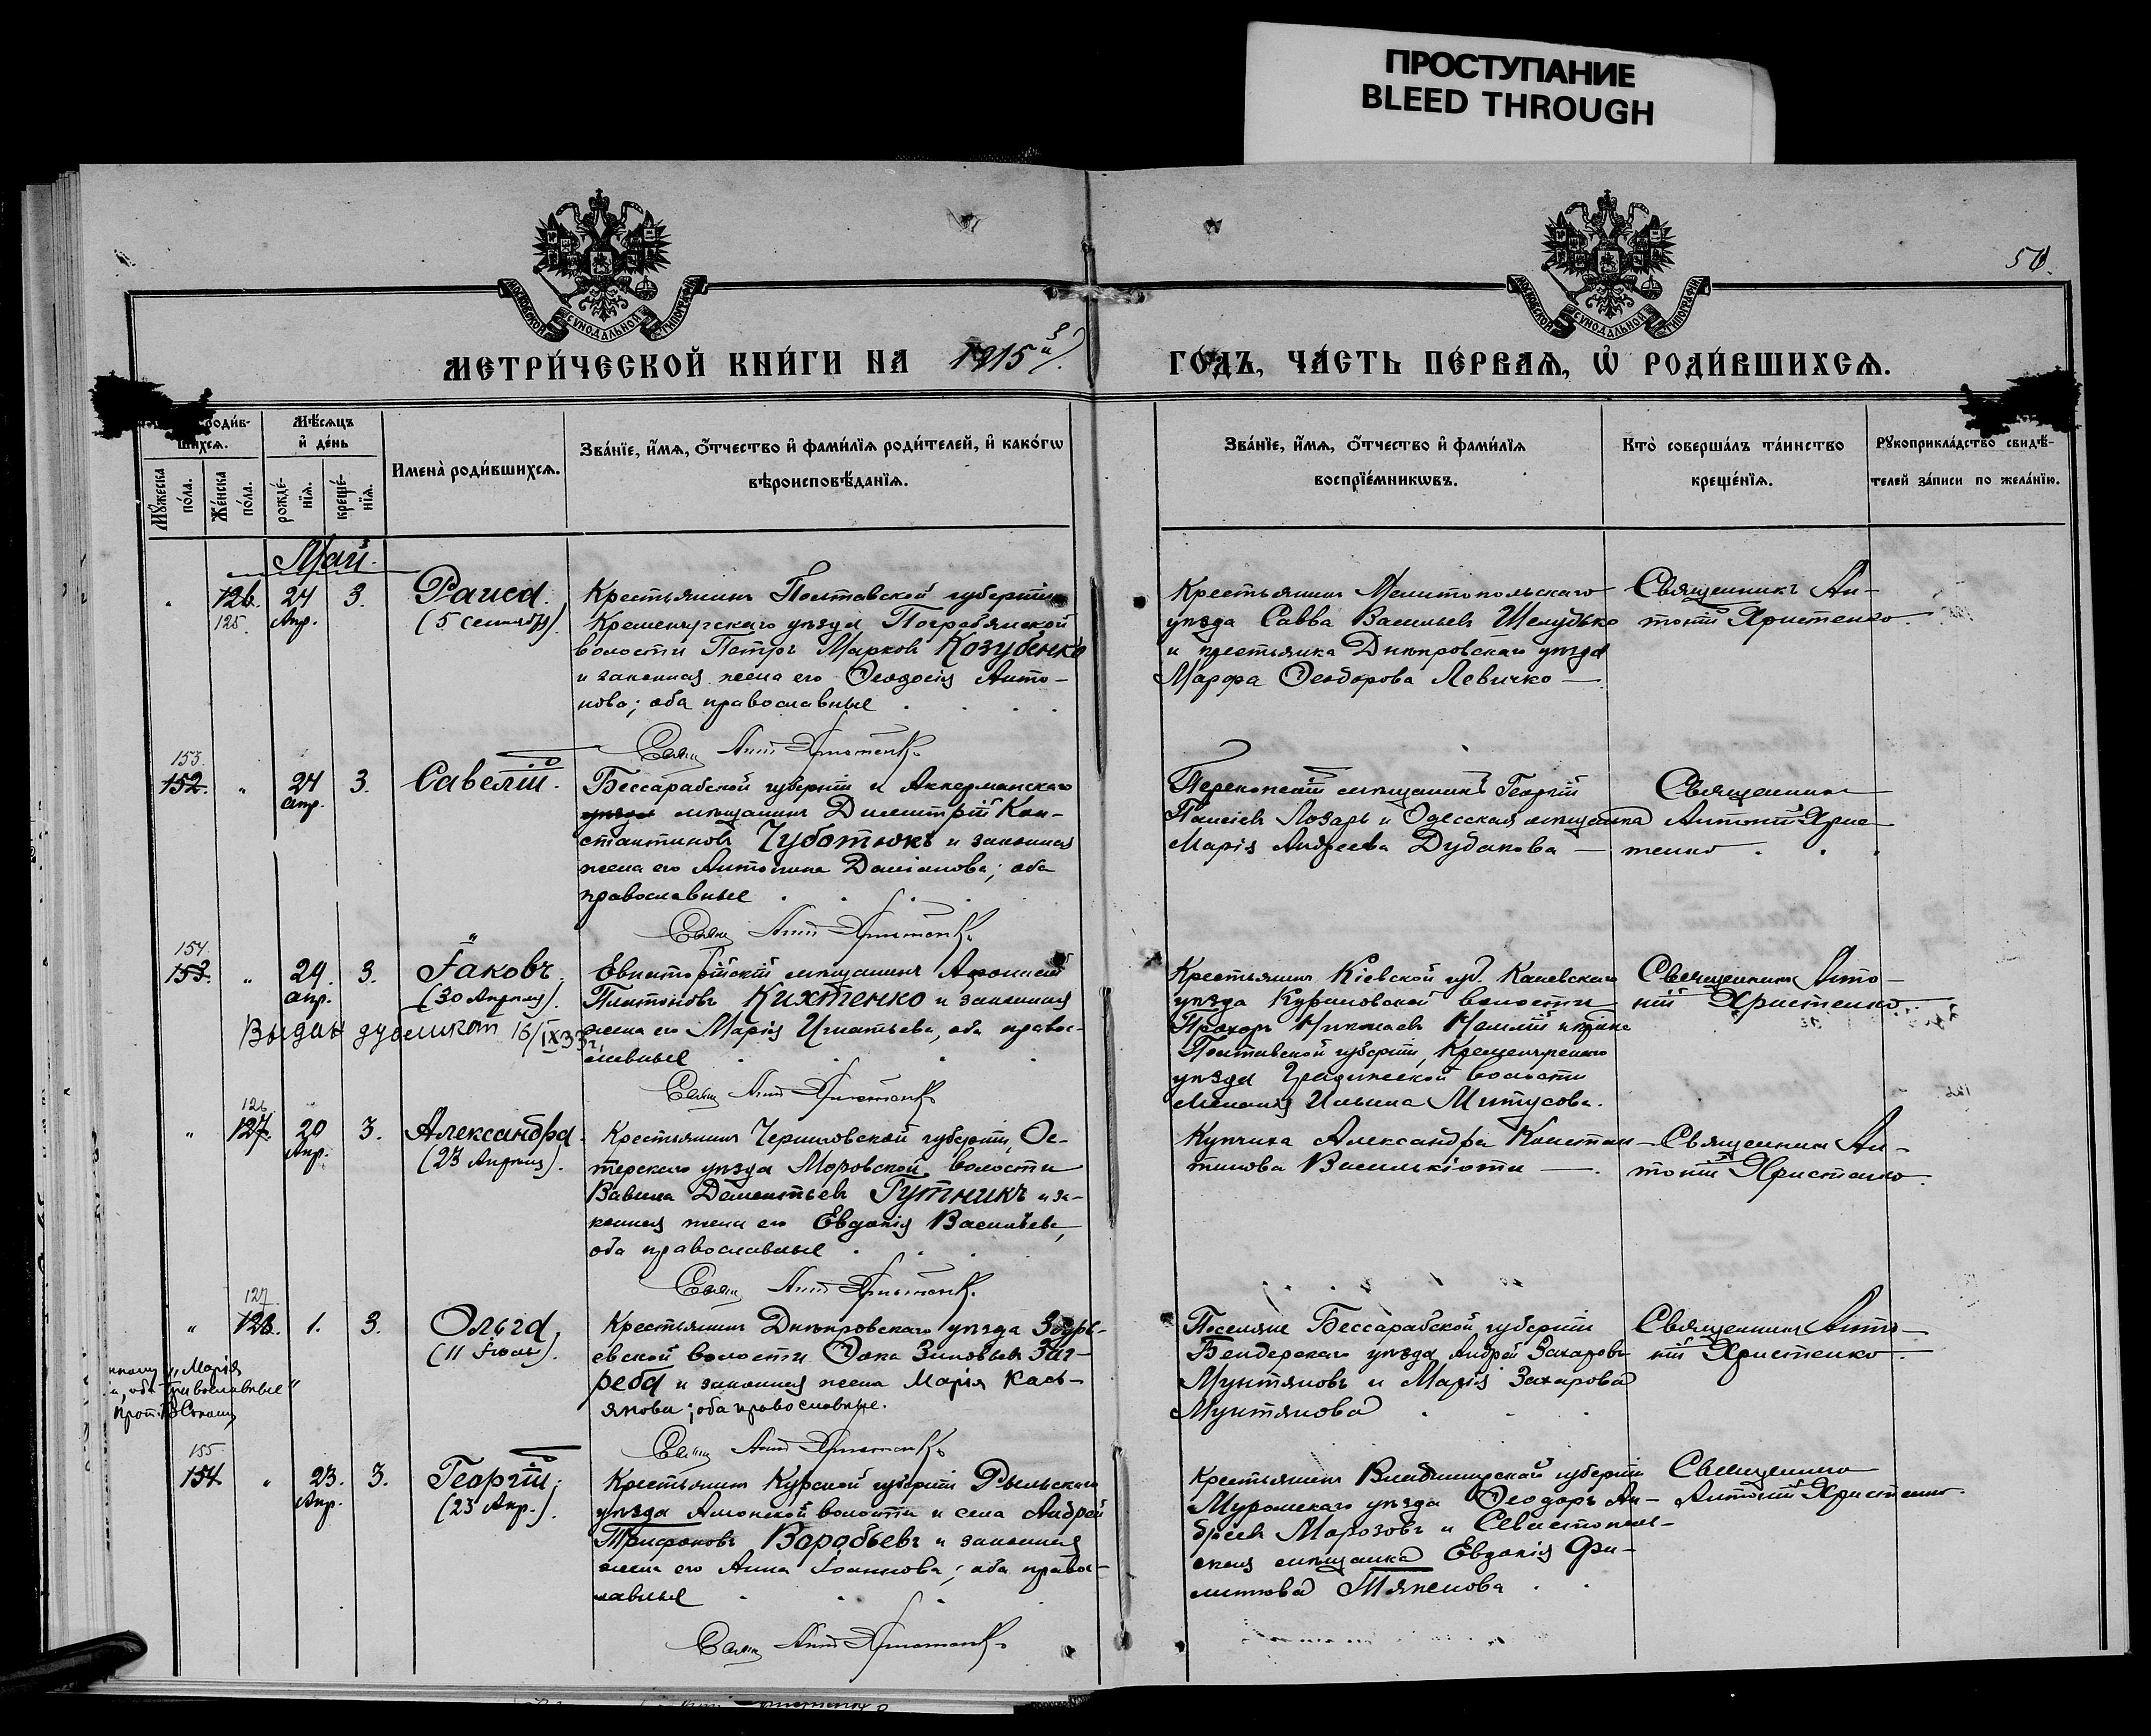 ПРОСТУПАНИЕ
BLEED THROUGH
50.
МОСКОВСКОЙ СУНОДАЛЬНОЙ ТИПОГРАФІИ
МОСКОВСКОЙ СУНОДАЛЬНОЙ ТИПОГРАФІИ
МЕТРИ́ЧЕСКОЙ КНИ́ГИ НА 1915й
ГО́ДЪ, ЧА́СТЬ ПЕ́РВАѦ, Ѡ҆ РОДИ́ВШИХСѦ.
роди́вшихсѧ.
Мꙋ́жеска по́ла.
Же́нска по́ла.
Мѣ́сѧцъ и҆ де́нь
рожде́нїѧ.
креще́нїѧ.
Имена̀ роди́вшихсѧ.
Зва́нїе, и҆́мѧ, ѻ҆́тчество и҆ фами́лїѧ роди́телей, и҆ како́гѡ
вѣроисповѣ́данїѧ.
Зва́нїе, и҆́мѧ, ѻ҆́тчество и҆ фами́лїѧ
воспрїе́мникѡвъ.
Кто̀ соверша́лъ та́инство
креще́нїѧ.
Рꙋкоприкла́дство свидѣ́-
телей за́писи по жела́нїю.
Май.
" 126. 125. 24 Апр. 3.
Раиса.
(5 сентября).
Крестьянинъ Полтавской губерніи
Кременчугскаго уѣзда Погребянской
волости Петръ Марковъ Козубенко
и законная жена его Ѳеодосія Анто-
нова; оба православные
Свящ. Антоній Христенко
Крестьянинъ Мелитопольскаго
уѣзда Савва Васильевъ Шелудько
и крестьянка Днѣпровскаго уѣзда
Марфа Ѳеодорова Левичко —
Священникъ Ан-
тоній Христенко.
153. 152. " 24 апр. 3.
Савелій.
Бессарабской губерніи и Аккерманскаго
уѣзда мѣщанинъ Димитрій Кон-
стантиновъ Чуботюкъ и законная
жена его Антонина Даміанова; оба
православные
Свящ. Антоній Христенко
Перекопскій мѣщанинъ Георгій
Паисіевъ Лозарь и Одесская мѣщанка
Марія Андреева Дубакова —
Священникъ
Антоній Хрис-
тенко
154. 153. " 24. апр. 3.
Іаковъ,
(30 Апрѣля).
Выданъ дубликат 16/IX 33 г.
Евпаторійскій мѣщанинъ Афанасій
Платоновъ Кихтенко и законная
жена его Марія Игнатьева, оба право-
славные
Свящ. Антоній Христенко
Крестьянинъ Кіевской губ. Каневскаго
уѣзда Куриловской волости
Прохоръ Николаевъ
Полтавской губерніи, Кременчугскаго
уѣзда Градижской волости
Меланія Ильина Митусова.
Священникъ Анто-
ній Христенко.
" 126. 127. 20 Апр. 3.
Александра.
(23 Апрѣля).
Крестьянинъ Черниговской губерніи, Ос-
терскаго уѣзда Моровской волости
Вавила Дементьевъ Гутникъ и за-
конная жена его Евдокія Васильева,
оба православные
Свящ. Антоній Христенко
Купчиха Александра Констан-
тинова Василькіоти —
Священникъ Ан-
тоній Христенко.
" 127. 128. 1. 3.
Ольга,
(11 Іюля).
"Марія
оба православные"
Прот.
Крестьянинъ Днѣпровскаго уѣзда Збурь-
евской волости Ѳока Зиновьевъ Заг-
реба и законная жена Марія Кась-
янова; оба православные.
Свящ. Антоній Христенко
Поселяне Бессарабской губерніи
Бендерскаго уѣзда Андрей Захаровъ
Мунтяновъ и Марія Захарова
Мунтянова
Священникъ Анто-
ній Христенко.
155. 154. " 23. Апр. 3.
Георгій;
(23 Апр.).
Крестьянинъ Курской губерніи Рыльскаго
уѣзда Амонской волости и села Андрей
Трифоновъ Воробьевъ и законная
жена его Анна Іоаннова; оба право-
славные
Свящ. Антоній Христенко
Крестьянинъ Владимірской губерніи
Муромскаго уѣзда Ѳеодоръ Ан-
дреевъ Морозовъ и Севастополь-
ская мѣщанка Евдокія Фи-
липпова
Священникъ
Антоній Христенко.